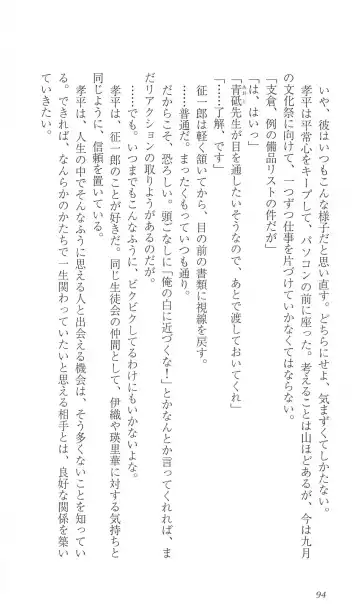 いや、彼はいつもこんな様子だと思い直す。どちらにせよ、気まずくてしかたない。
孝平は平常心をキープして、パソコンの前に座った。考えることは山ほどあるが、今は九月
の文化祭に向けて、一つずつ仕事を片づけていかなくてはならない。
「支倉、例の備品リストの件だが」
「は、はいっ」
「青砥先生が目を通したいそうなので、あとで渡しておいてくれ」
「……了解、です」
征一郎は軽く頷いてから、目の前の書類に視線を戻す。
……普通だ。まったくもっていつも通り。
だからこそ、恐ろしい。頭ごなしに「俺の白に近づくな！」とかなんとか言ってくれれば、ま
だリアクションの取りようがあるのだが。
……でも。いつまでもこんなふうに、ビクビクしてるわけにもいかないよな。
孝平は、征一郎のことが好きだ。同じ生徒会の仲間として、伊織や瑛里華に対する気持ちと
同じように、信頼を置いている。
孝平は、人生の中でそんなふうに思える人と出会える機会は、そう多くないことを知ってい
る。できれば、なんらかのかたちで一生関わっていたいと思える相手とは、良好な関係を築い
ていきたい。
94